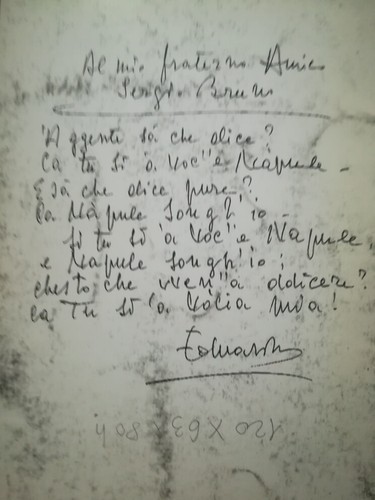 Al mio fraterno Amico
Sergio Bruni
'A ggente sà che dice?
Ca tu si 'a voc''e Napule -
E sà che dice pure?
Ca Nàpule songh'io -
Si tu sì 'a voc''e Napule,
e Napule songh'io;
chesto che vven''a ddicere?
ca Tu sì 'a voce mia!
Eduardo
120 X 63 X 80h